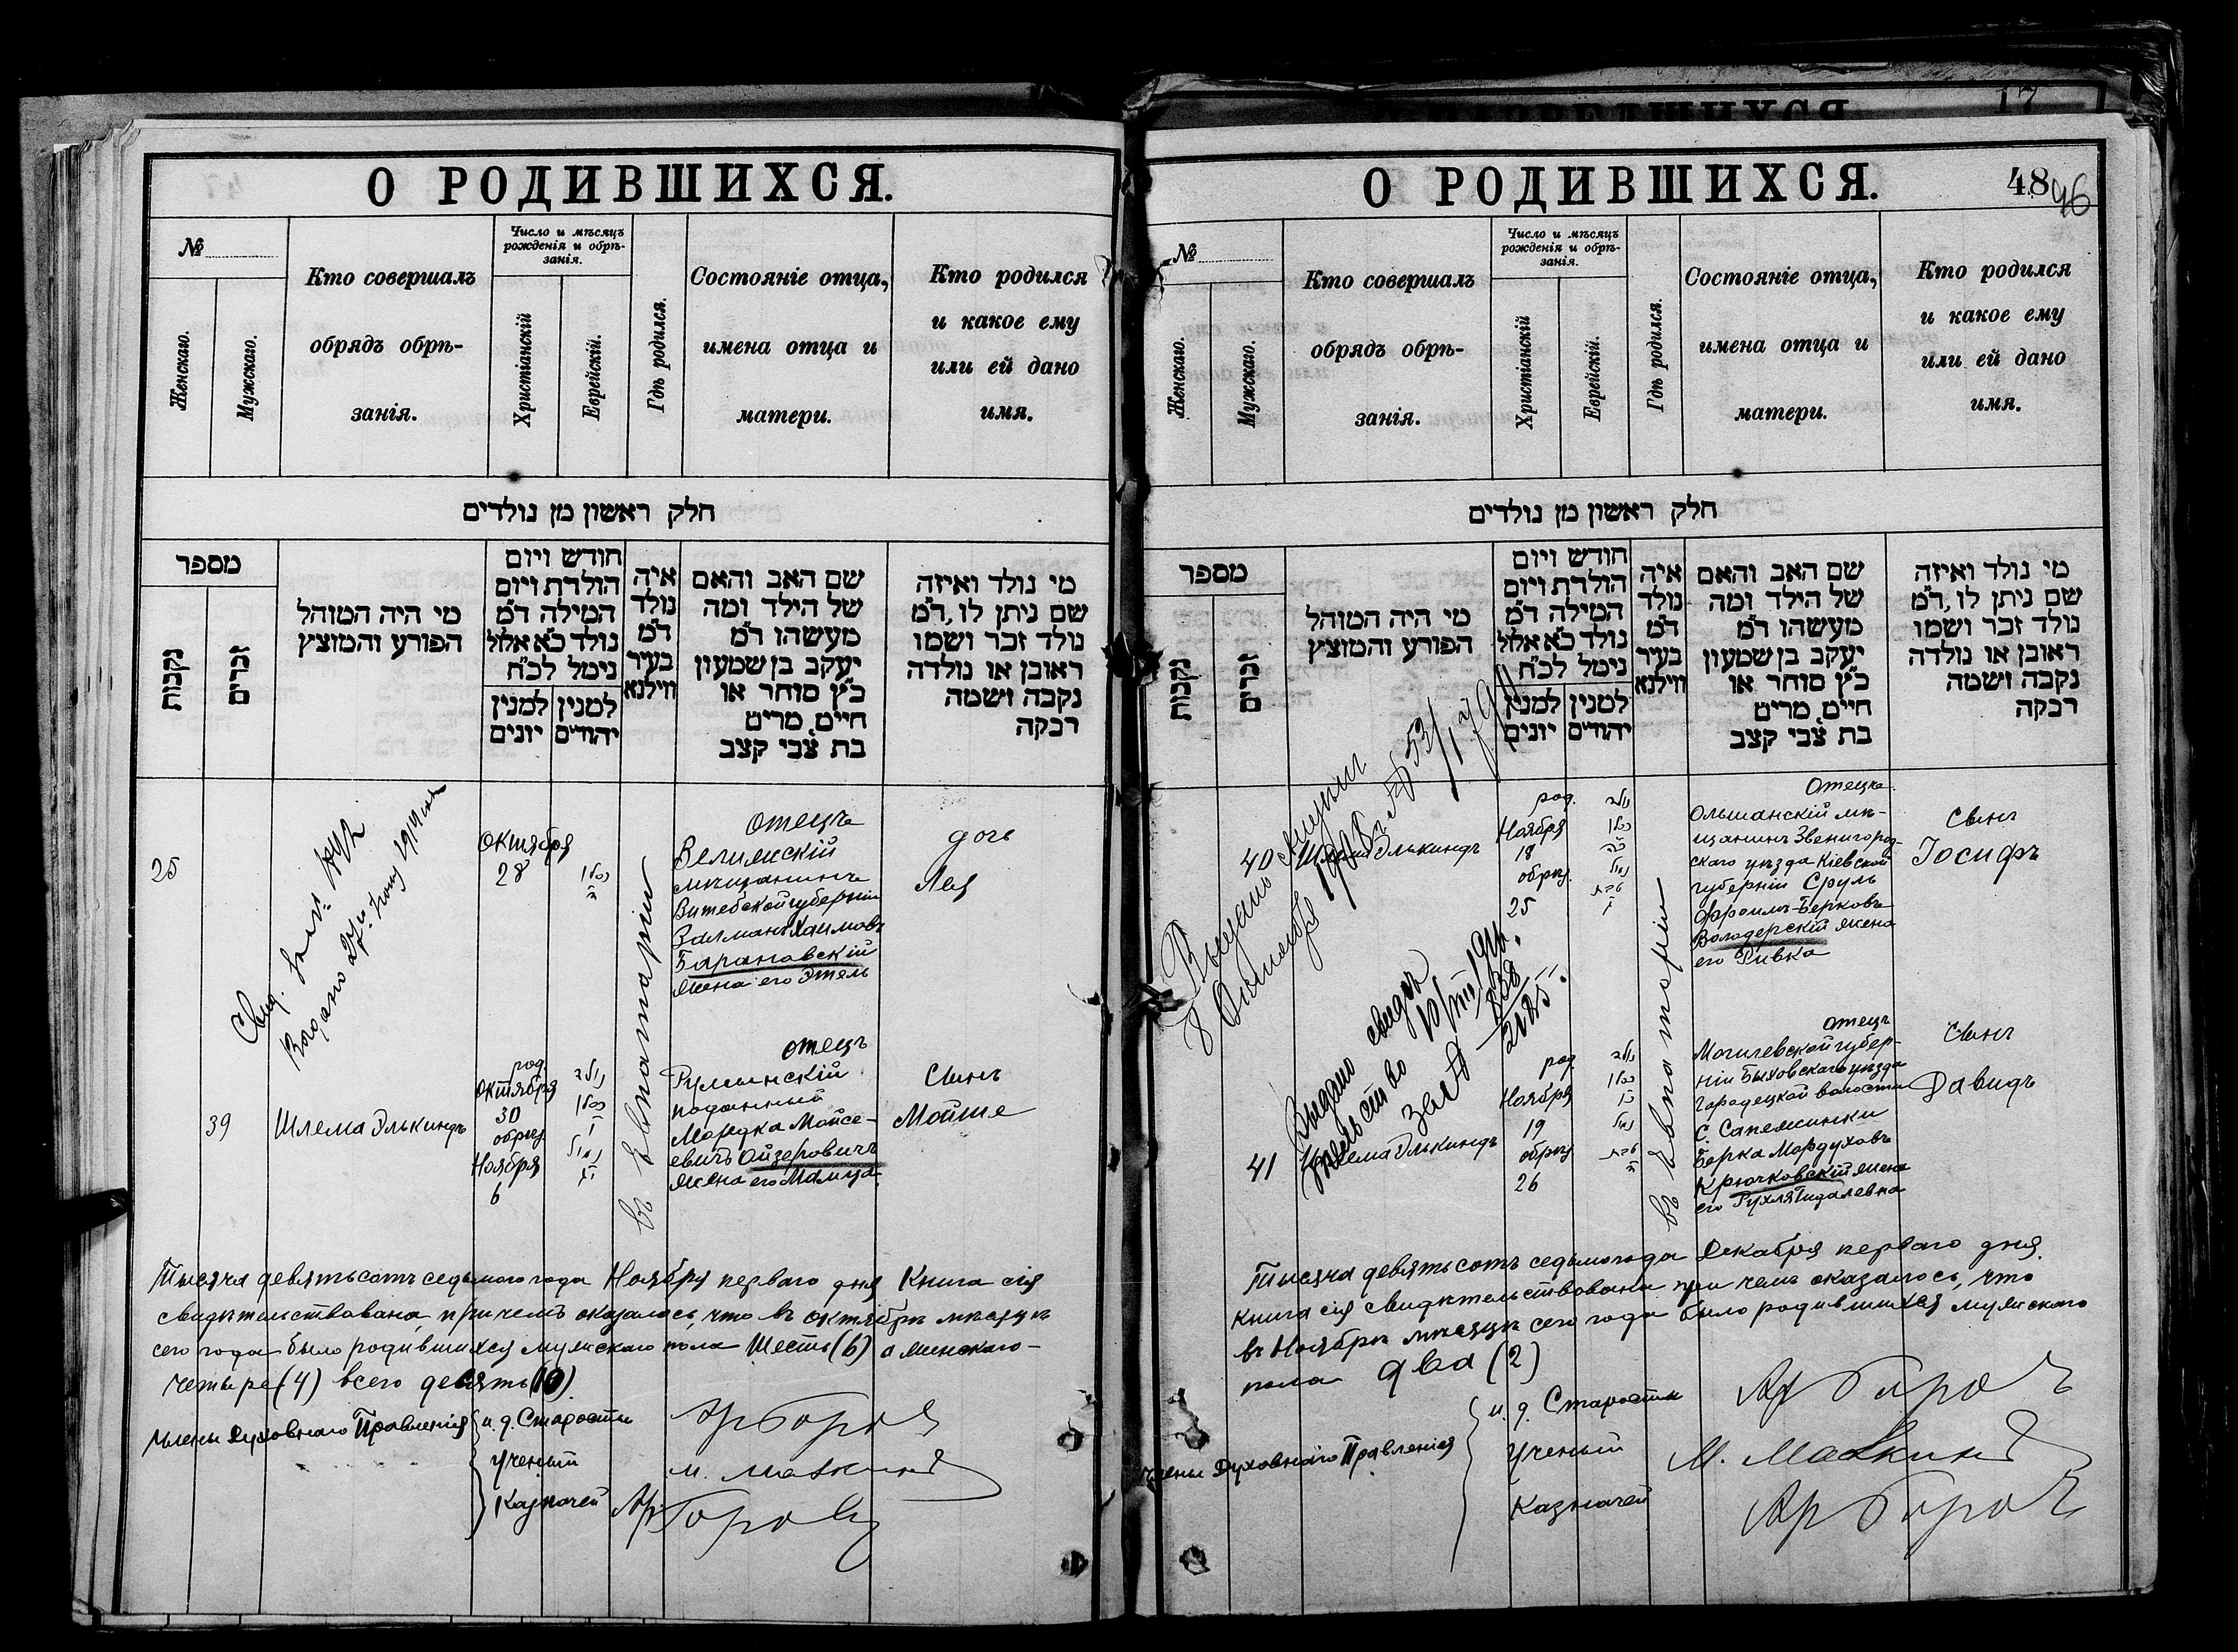 О РОДИВШИХСЯ.
№
Женскаго.
Мужскаго.
Кто совершалъ
обрядъ обрѣ-
занія.
Число и мѣсяцъ
рожденія и обрѣ-
занія.
Христіанскій
Еврейскій.
Гдѣ родился.
Состояніе отца,
имена отца и
матери.
Кто родился
и какое ему
или ей дано
имя.
חלק ראשון מן נולדים
מספר
נקבות
זכרים
מי היה המוהל
הפורע והמוצץ
חודש ויום
הולדת ויום
המילה ד״מ
נולד כ״א אלול
נימל לכ״ח
למנין יונים
למנין יהודים
איה
נולד
ד״מ
בעיר
ווילנא
שם האב והאם
של הילד ומה
מעשהו ד״מ
יעקב בן שמעון
כ״ץ סוחר או
חיים, מרים
בת צבי קצב
מי נולד ואיזה
שם ניתן לו, ד״מ
נולד זכר ושמו
ראובן או נולדה
נקבה ושמה
רבקה
25
Октября
28
כסלו
ה
въ Евпаторіи
Отецъ
Велижскій
мѣщанинъ
Витебской губерніи
Залманъ Хаимовъ
Барановскій
жена его Этель
дочь
Лея
39
Шлема Элькиндъ
род.
Октября
30
обрѣз.
Ноября
6
נולד
כסלו
ז
נימול
יד
Отецъ
Румынскій
подданный
Мордка Мойсе-
евичъ Ойзеровичъ
жена его Малица
Сынъ
Мойше
Тысяча девятьсотъ седьмого года Ноября перваго дня Книга сія
свидѣтельствована, при чемъ оказалось, что въ октябрѣ мѣсяцѣ
сего года было родившихся мужскаго пола Шесть (6) а женскаго-
четыре (4) всего девять (10)
Члены Духовнаго Правленія
и. д. Старосты
Ученый
М. Маскинъ
Казначей
О РОДИВШИХСЯ.
48
96
№
Женскаго.
Мужскаго.
Кто совершалъ
обрядъ обрѣ-
занія.
Число и мѣсяцъ
рожденія и обрѣ-
занія.
Христіанскій
Еврейскій.
Гдѣ родился.
Состояніе отца,
имена отца и
матери.
Кто родился
и какое ему
или ей дано
имя.
חלק ראשון מן נולדים
מספר
נקבות
זכרים
מי היה המוהל
הפורע והמוצץ
חודש ויום
הולדת ויום
המילה ד״מ
נולד כ״א אלול
נימל לכ״ח
למנין יונים
למנין יהודים
איה
נולד
ד״מ
בעיר
ווילנא
שם האב והאם
של הילד ומה
מעשהו ד״מ
יעקב בן שמעון
כ״ץ סוחר או
חיים, מרים
בת צבי קצב
מי נולד ואיזה
שם ניתן לו, ד״מ
נולד זכר ושמו
ראובן או נולדה
נקבה ושמה
רבקה
40
Шлема Элькиндъ
род.
Ноября
18
обрѣз.
25
נולד
כסלו
כה
נימול
טבת
ג
въ Евпаторіи
Отецъ
Ольшанскій мѣ-
щанинъ Звенигород-
скаго уѣзда Кіевской
губерніи Сруль
Фроимъ-Берковъ
Володерскій жена
его Ривка
Сынъ
Іосифъ
Выдано свидѣ-
тельство
41
Шлема Элькиндъ
род.
Ноября
19
обрѣз.
26
נולד
כסלו
נימול
טבת
Отецъ
Могилевской губер-
ніи Быховскаго уѣзда
Городецкой волости
С. Сапежинки
Берка Мордуховъ
Крючковскій жена
его Рухля Гидалевна
Сынъ
Давидъ
Тысяча девятьсотъ седьмого года Декабря перваго дня.
Книга сія свидѣтельствована при чемъ оказалось, что
въ Ноябрѣ мѣсяцѣ сего года было родившихся мужскаго
пола два (2)
Члены Духовнаго Правленія
и. д. Старосты
Ученый
М. Маскинъ
Казначей